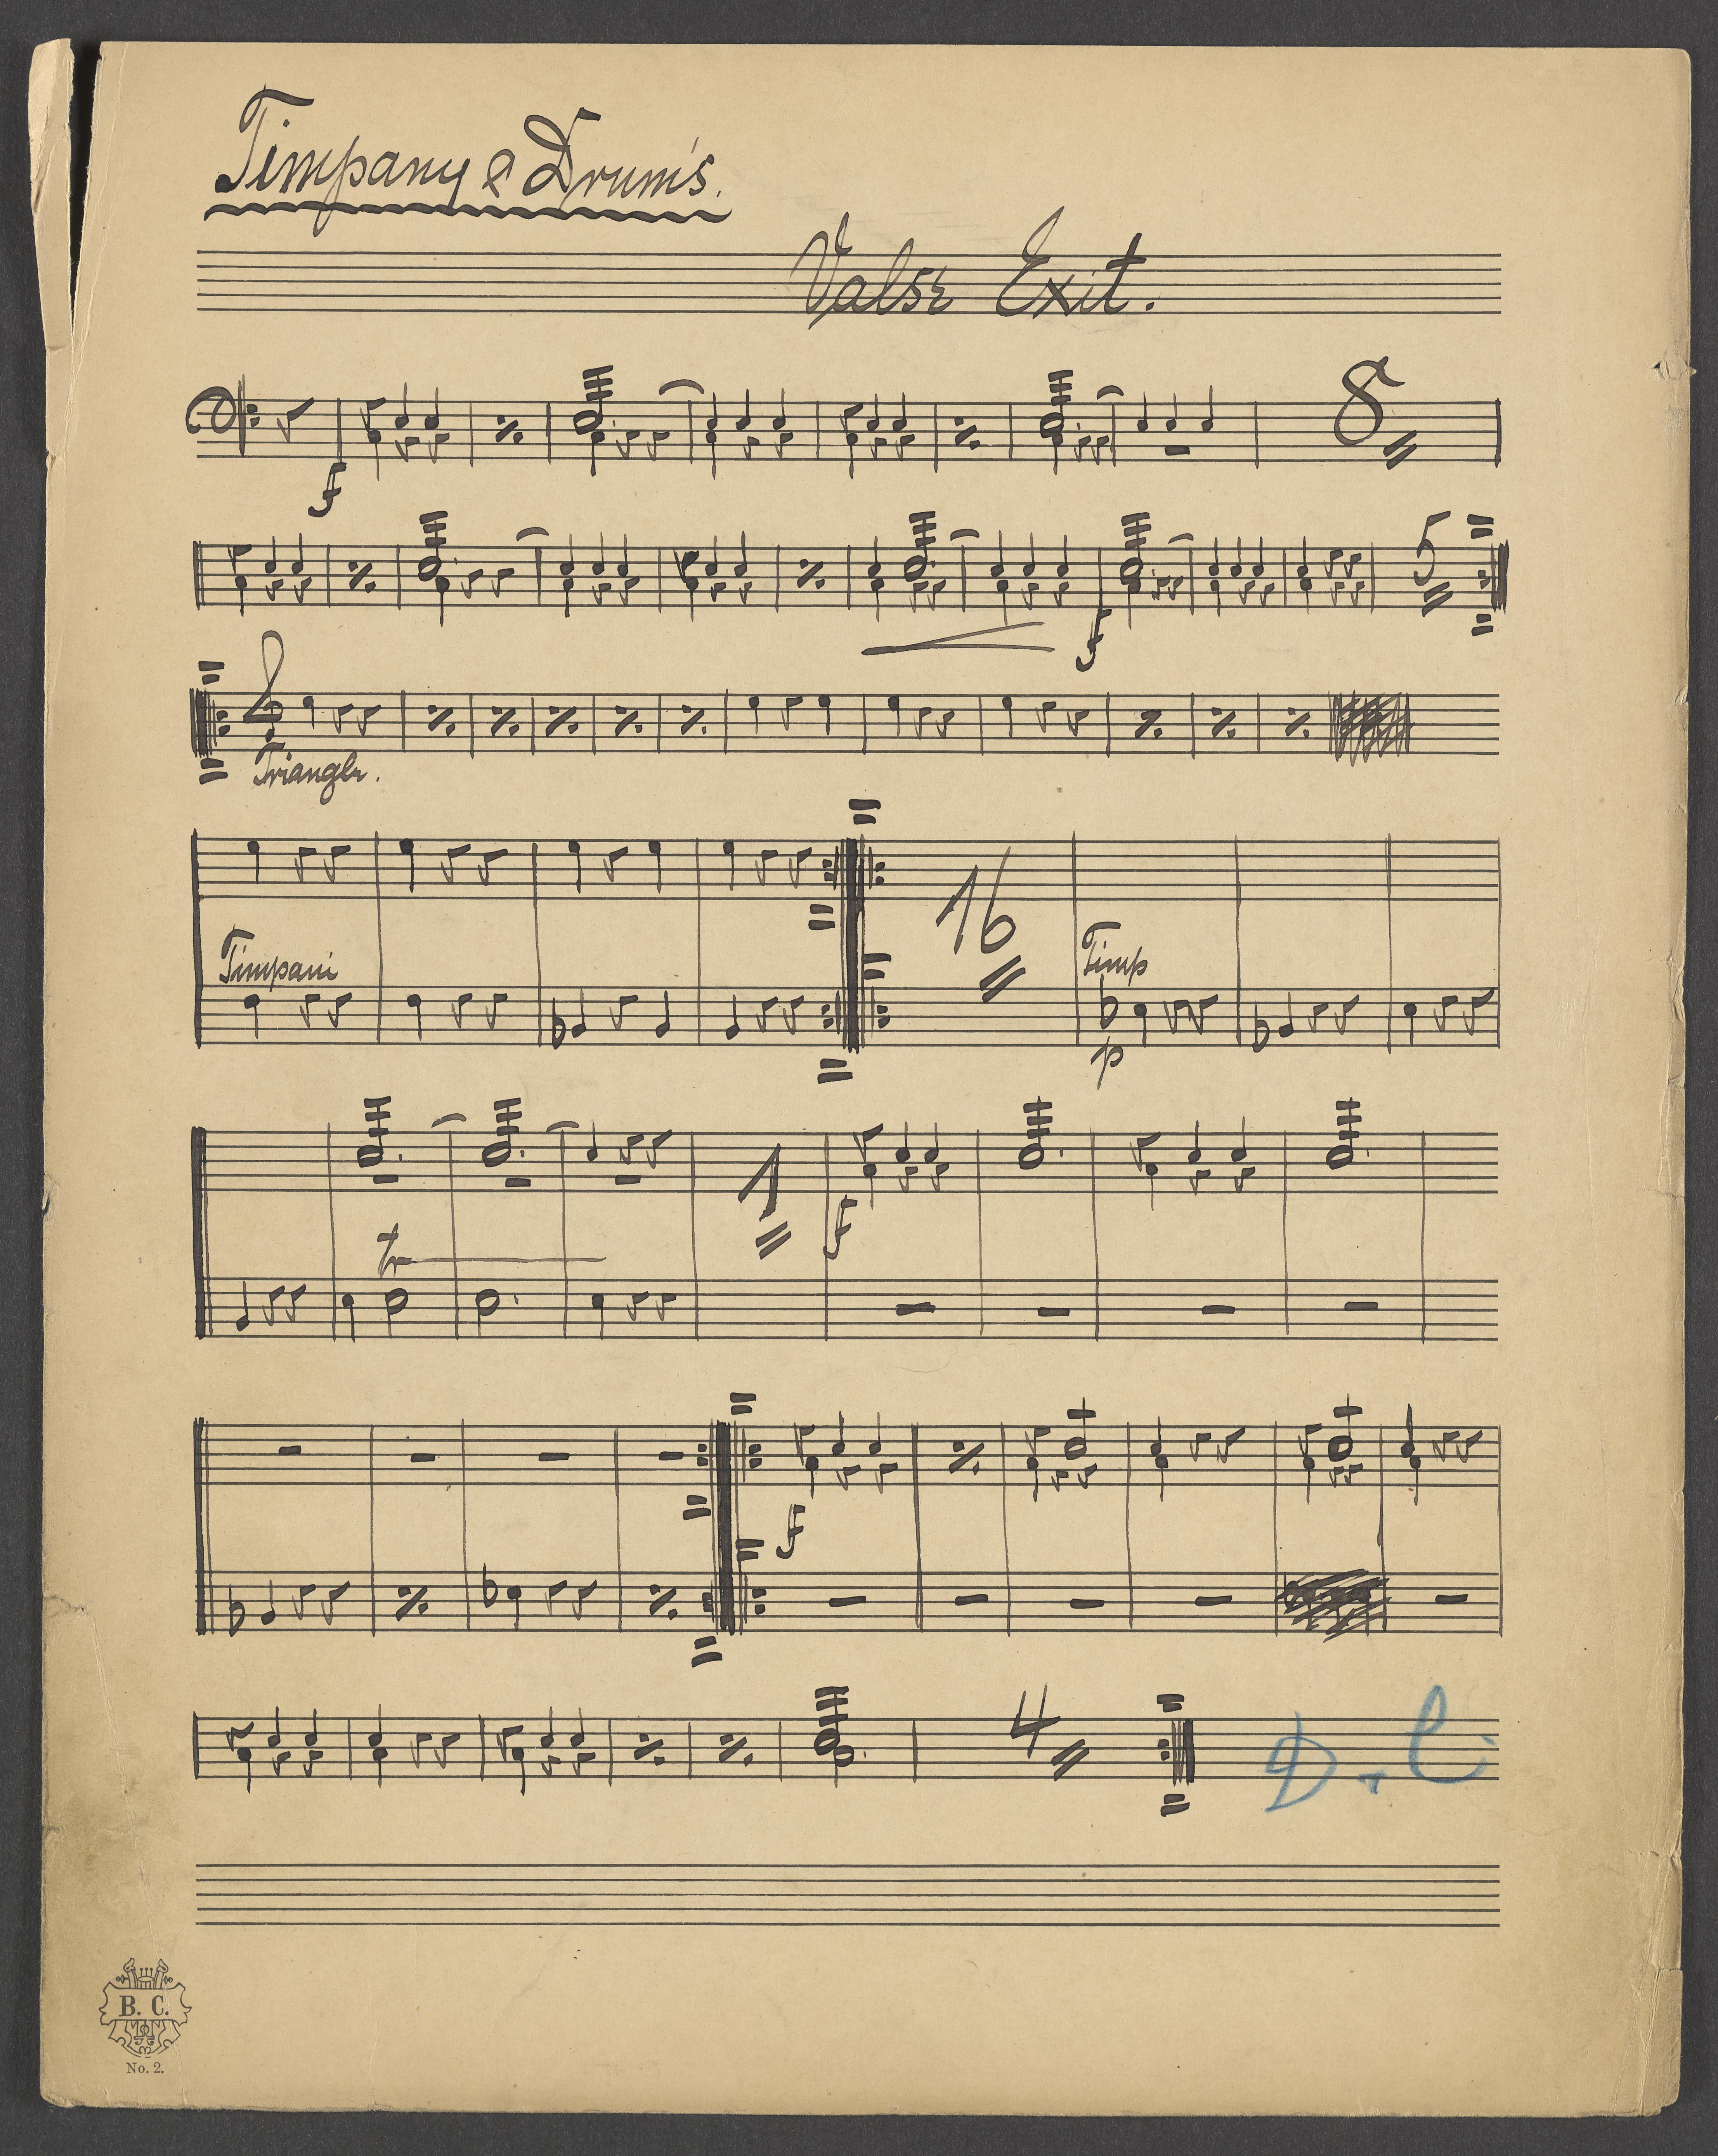 Timpany & Drum's.
Valse Exit.
8
f
5
f
Triangle.
16
Timpani
Timp
p
1
f
tr
f
4
D. C
B. C.
No. 2.